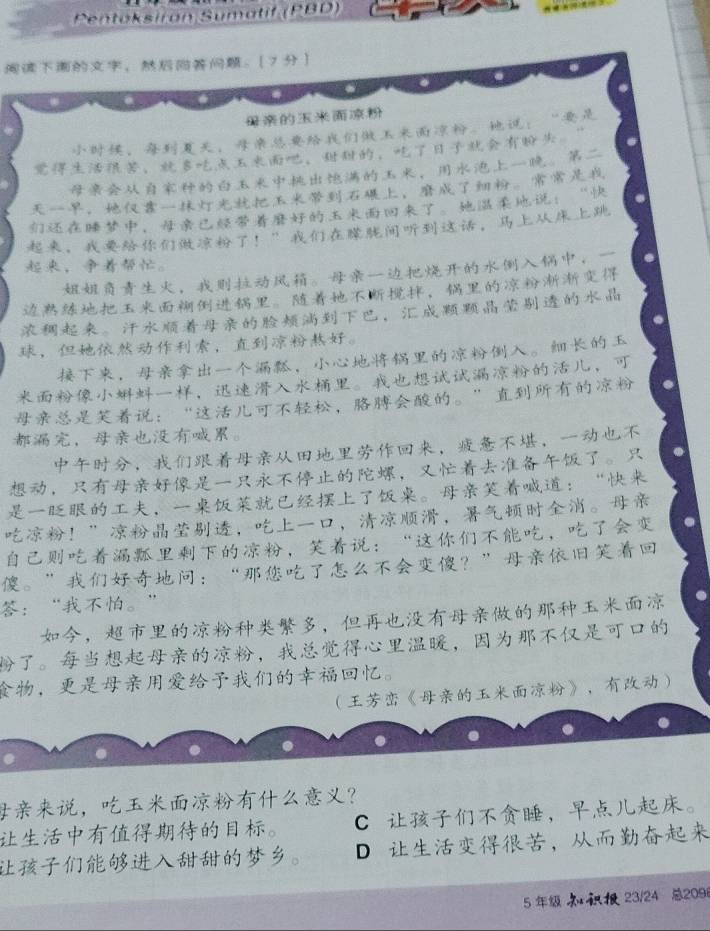 Pentaksiran Sumatif (PBD)
阅读下面的文字，然后回答问题。[7分]
母亲的玉米面凉粉
小时候，每到夏天，母亲总要给我们做玉米面凉粉。她说：“要是
觉得生活很苦，就多吃点玉米面吧，甜甜的，吃了日子就会有盼头。”
母亲会从自家种的白玉米中挑出饱满的玉米，用水泡上一晚。第二
天一早，她仅靠一抹灯光就把玉米带到石碾上，磨成了细粉。常常是我
们还在睡梦中，母亲已经带着磨好的玉米面回来了。她温柔地说：“快
起来，我要给你们做凉粉了！”我们在朦胧间听到这话，马上从床上跳
起来，争着帮忙。
姐姐负责生火，我则拉动风箱。母亲一边把烧开的水倒入锅中，一
边熟练地把玉米面糊倒进锅里。随着她不断搅拌，锅里的凉粉渐渐变得
浓稠起来。汗水顺着母亲的脸颊淌到下巴，汇成颗颗晶莹剔透的水晶
球，但她依然动作利索，直到凉粉熬好。
接下来，母亲拿出一个漏瓢，小心地将锅里的凉粉倒入。细长的玉
米面粉像小蝌蚪一样，迅速滑入水桶里。我也想试试漏凉粉的活儿，可
母亲总是笑着说：“这活儿可不轻松，胳膊会酸的。”直到所有的凉粉
都漏完，母亲也没有喊累。
中午时分，我们跟着母亲从田地里劳作回来，疲惫不堪，一动也不
想动，只有母亲好像是一只永不停止的陀螺，又忙着去准备午饭了。只
是一眨眼的工夫，一桌饭菜就已经摆上了饭桌。母亲笑着喊道：“快来
吃凉粉！”凉粉晶莹剔透，吃上一口，清凉顺滑，暑气顿时全消。母亲
自己则吃着漏瓢里剩下的凉粉，笑着说：“这你们不能吃，吃了会变
傻。”我们好奇地问：“那您吃了怎么不会变傻？”母亲依旧笑着回
答：“我不怕。”
如今，超市里的凉粉种类繁多，但再也没有母亲做的那种玉米面凉
粉了。每当想起母亲的凉粉，我总觉得心里温暖，因为那不仅是可口的
食物，更是母亲用爱给予我们的幸福回忆。
（王芳峦《母亲的玉米面凉粉》，有改动）
母亲来说，吃玉米面凉粉有什么意义？
让生活中有值得期待的目标。 C 让孩子们不贪睡，早点儿起床。
让孩子们能够进入甜甜的梦乡。 D 让生活变得很苦，从而勤奋起来
5年级 知识报 23/24 总209